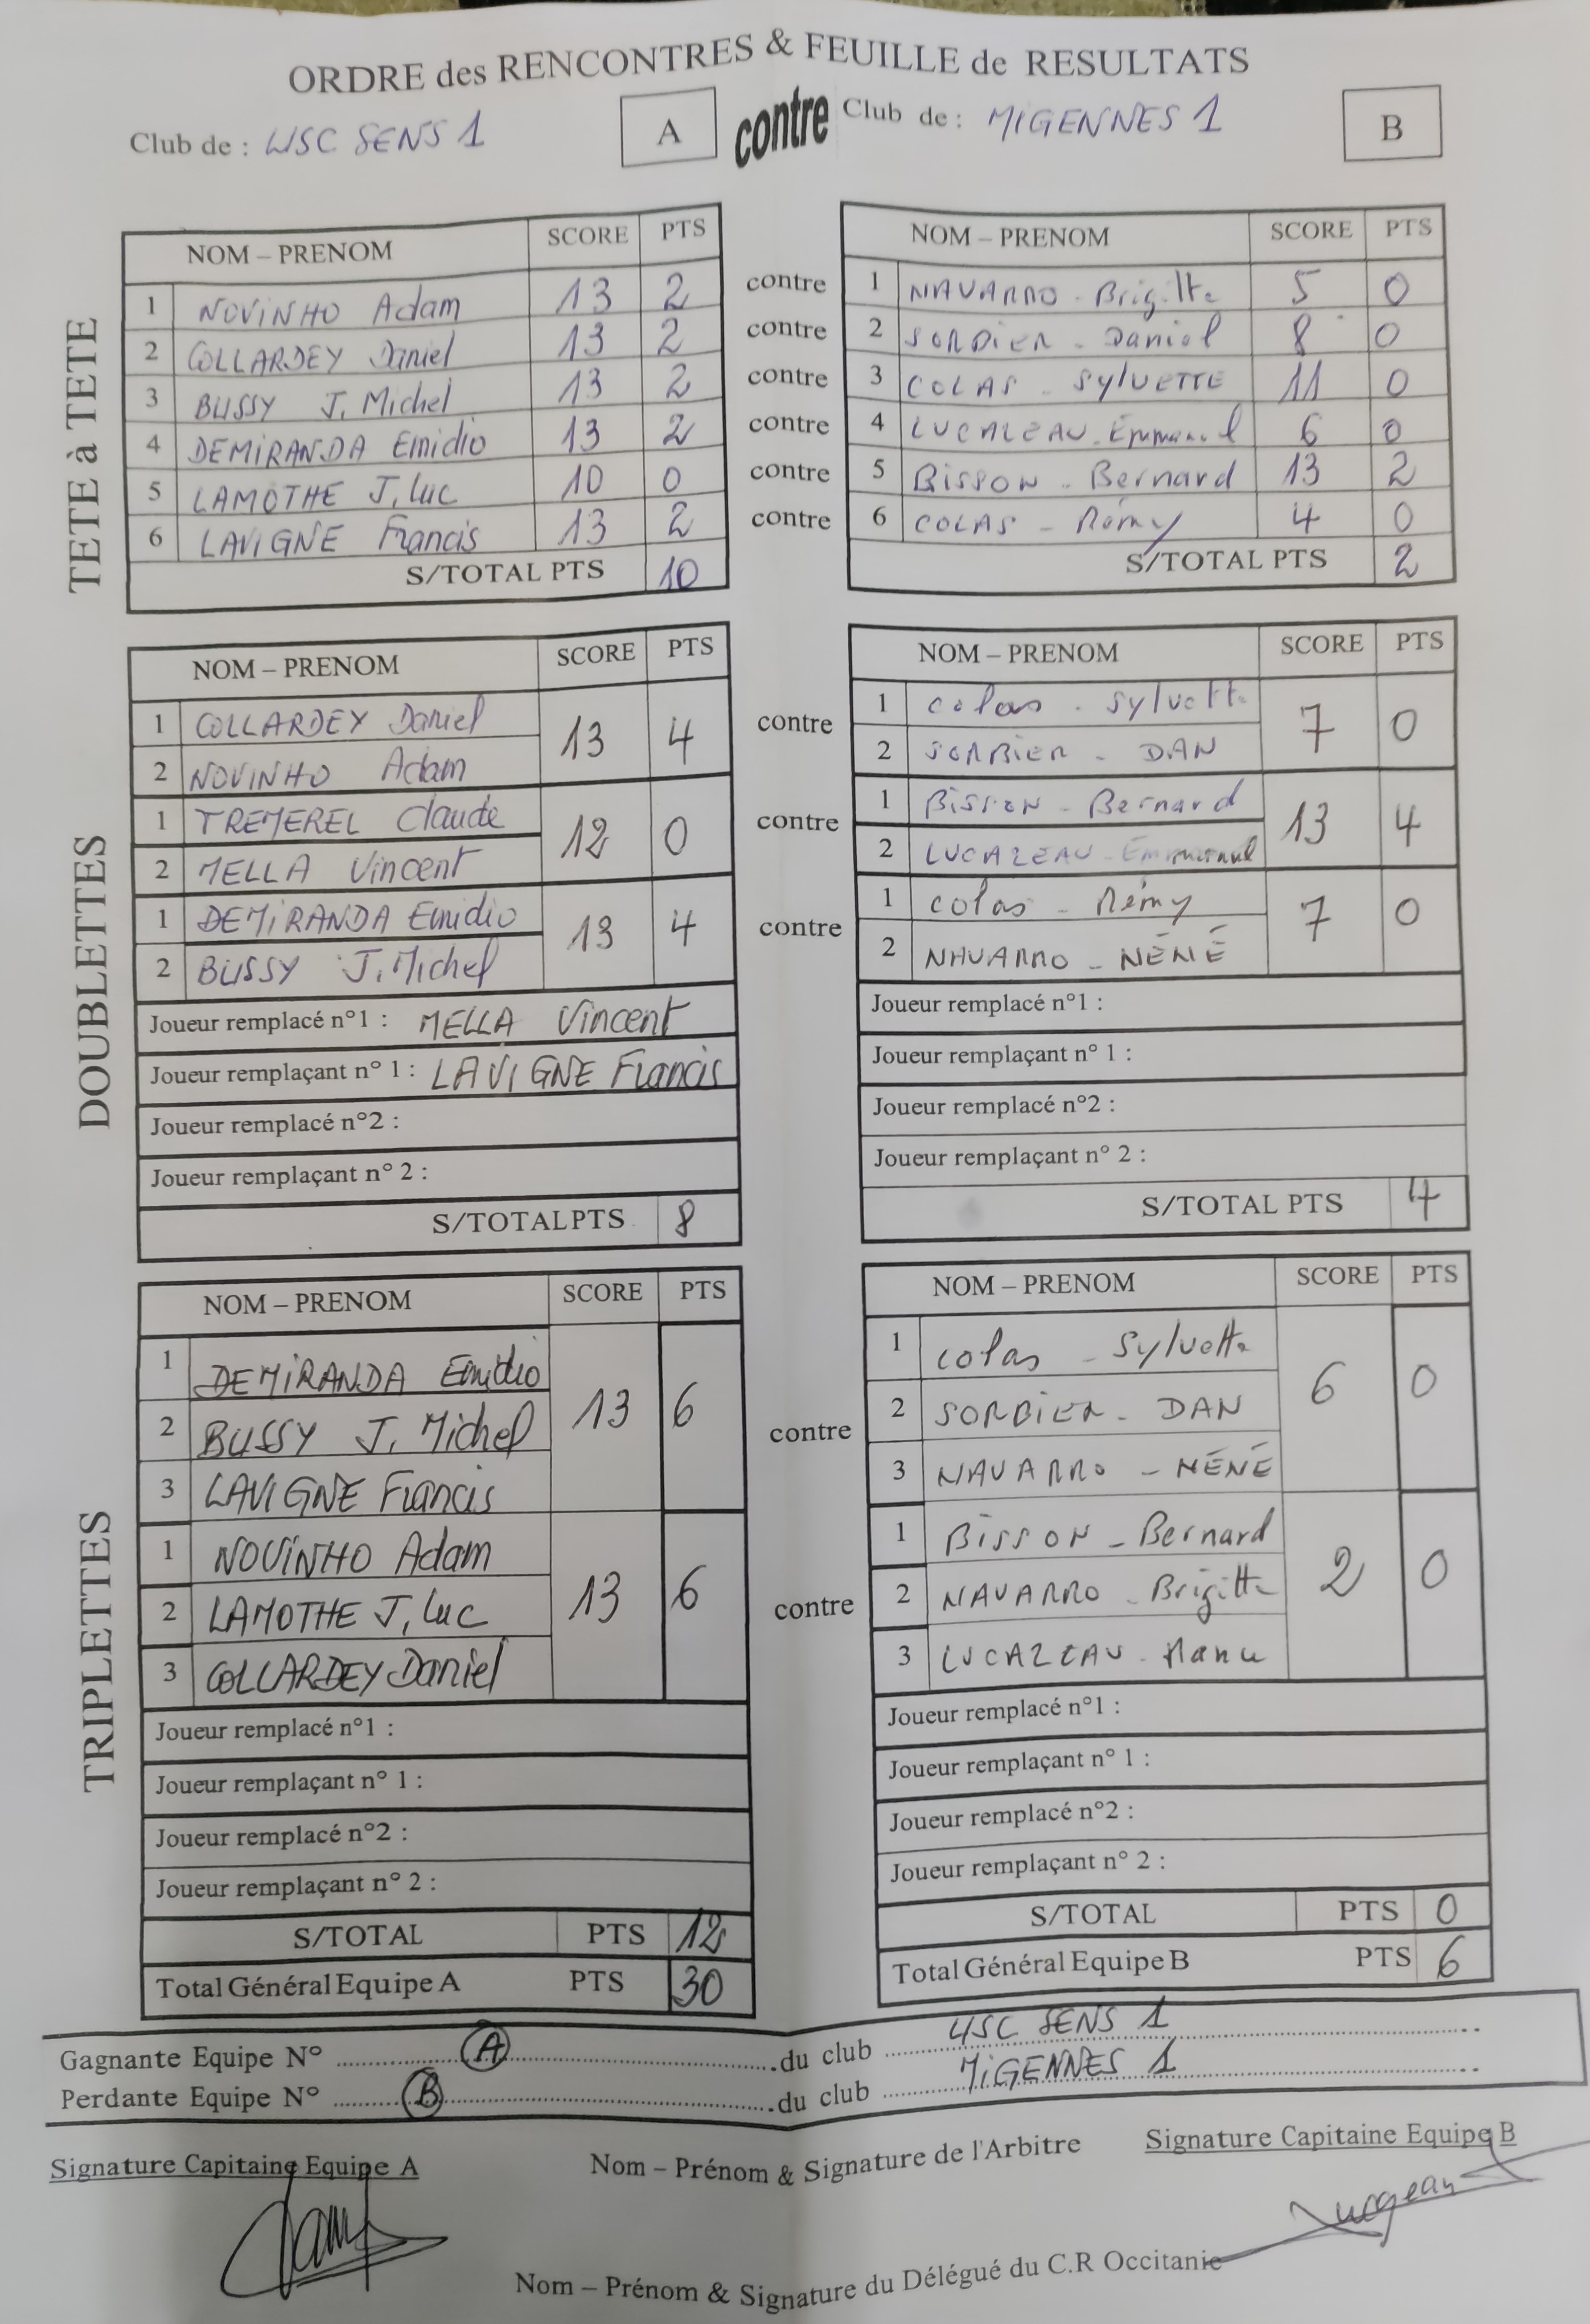 ORDRE des RENCONTRES & FEUILLE de RESULTATS
Club de : USC SENS 1 A contre Club de : MIGENNES 1 B
TETE à TETE
NOM – PRENOM SCORE PTS NOM – PRENOM SCORE PTS
1 NOVINHO Adam 13 2 contre 1 NAVARRO - Brigitte 5 0
2 COLLARDEY Daniel 13 2 contre 2 SORBIER - Daniel 8 0
3 BUSSY J. Michel 13 2 contre 3 COLAS - SylVETTE 11 0
4 DEMIRANDA Emidio 13 2 contre 4 LUCAZEAU - Emmanuel 6 0
5 LAMOTHE J. Luc 10 0 contre 5 BISSON - Bernard 13 2
6 LAVIGNE Francis 13 2 contre 6 COLAS - Rémy 4 0
S/TOTAL PTS 10 S/TOTAL PTS 2
DOUBLETTES
NOM – PRENOM SCORE PTS NOM – PRENOM SCORE PTS
1 COLLARDEY Daniel 13 4 contre 1 Colas - Sylvette 7 0
2 NOVINHO Adam 2 SORBIER - DAN
1 TREMEREL Claude 12 0 contre 1 BISSON - Bernard 13 4
2 MELLA Vincent 2 LUCAZEAU - Emmanuel
1 DEMIRANDA Emidio 13 4 contre 1 Colas - Rémy 7 0
2 BUSSY J. Michel 2 NAVARRO - NÉNÉ
Joueur remplacé n°1 : MELLA Vincent Joueur remplacé n°1 :
Joueur remplaçant n° 1 : LAVIGNE Francis Joueur remplaçant n° 1 :
Joueur remplacé n°2 : Joueur remplacé n°2 :
Joueur remplaçant n° 2 : Joueur remplaçant n° 2 :
S/TOTAL PTS 8 S/TOTAL PTS 4
TRIPLETTES
NOM – PRENOM SCORE PTS NOM – PRENOM SCORE PTS
1 DEMIRANDA Emidio 13 6 contre 1 Colas - Sylvette 6 0
2 BUSSY J. Michel 2 SORBIER - DAN
3 LAVIGNE Francis 3 NAVARRO - NÉNÉ
1 NOVINHO Adam 13 6 contre 1 BISSON - Bernard 2 0
2 LAMOTHE J. Luc 2 NAVARRO - Brigitte
3 COLLARDEY Daniel 3 LUCAZEAU - Manu
Joueur remplacé n°1 : Joueur remplacé n°1 :
Joueur remplaçant n° 1 : Joueur remplaçant n° 1 :
Joueur remplacé n°2 : Joueur remplacé n°2 :
Joueur remplaçant n° 2 : Joueur remplaçant n° 2 :
S/TOTAL PTS 12 S/TOTAL PTS 0
Total Général Equipe A PTS 30 Total Général Equipe B PTS 6
Gagnante Equipe N° A du club USC SENS 1
Perdante Equipe N° B du club MIGENNES 1
Signature Capitaine Equipe A Nom – Prénom & Signature de l'Arbitre Signature Capitaine Equipe B
Nom – Prénom & Signature du Délégué du C.R Occitanie